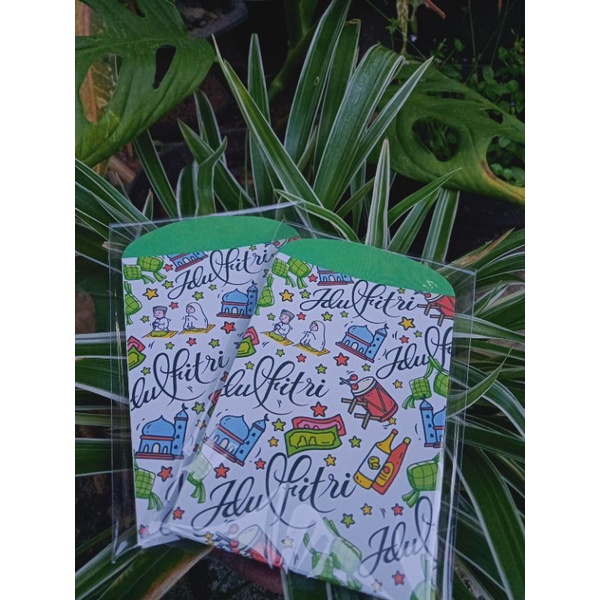 Idul Fitri
Idul Fitri
dul Fitri
Idul
Idul Fitri
Idul Fitri
Idul